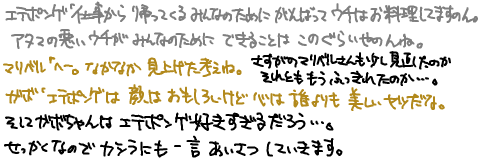 エテポンゲ「仕事から帰ってくるみんなのためにがんばってウチはお料理してますのん。
アタマの悪いウチがみんなのためにできることはこのぐらいやのんね。
マリベル「へー。なかなか見上げた考えね。
さすがのマリベルさんも少し見直したのか
それとももうふっきれたのか…。
ガボ「エテポンゲは顔はおもしろいけど心は誰よりも美しいヤツだな。
そしてガボちゃんはエテポンゲ好きすぎるだろう…。
せっかくなのでカシラにも一言あいさつしていきます。